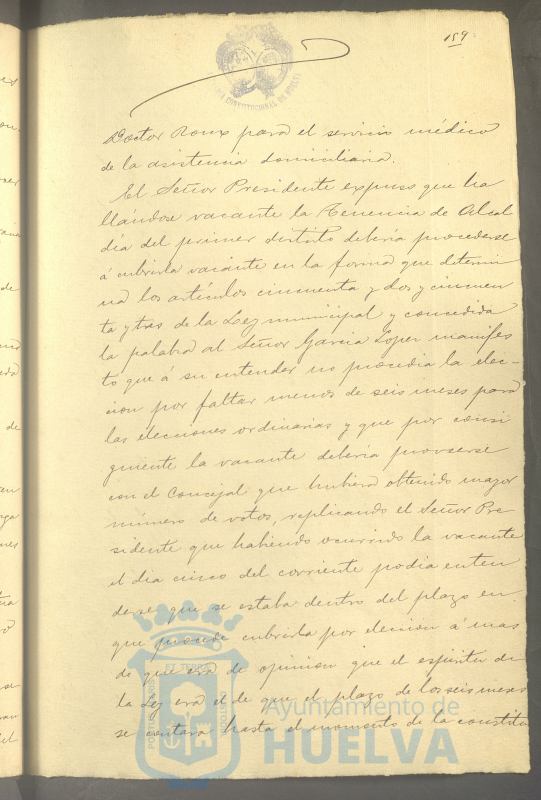 159.
Doctor Roux para el servicio médico
de la asistencia domiciliaria.
El Señor Presidente expuso que ha
llándose vacante la Tenencia de Alcal
día del primer distrito debería procederse
á cubrir la vacante en la forma que determi
na los artículos cincuenta y dos y cincuen
ta y tres de la Ley municipal y concedida
la palabra al Señor García Lopez manifes
to que á su entender no procedia la elec-
cion por faltar menos de seis meses para
las elecciones ordinarias y que por consi
guiente la vacante debería proveerse
con el Concejal que hubiera obtenido mayor
número de votos, replicando el Señor Pre
sidente que habiendo ocurrido la vacante
el dia cinco del corriente podia enten
derse que se estaba dentro del plazo en
que procede cubrirla por eleccion a mas
de que era de opinion que el espíritu de
la Ley era el de que el plazo de los seis meses
se contara hasta el momento de la constitu
Ayuntamiento de
HUELVA